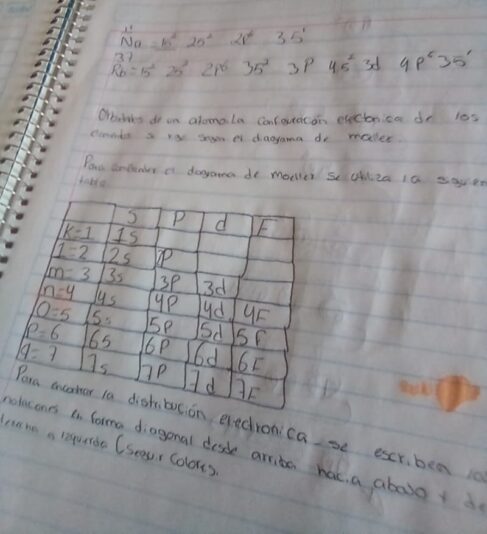 11
Na = 1s² 2s² 2p⁶ 3s¹
37
Rb = 1s² 2s² 2p⁶ 3s² 3p 4s² 3d 4p⁶ 5s¹
de un atomo la configuración electronica de los
se rige segun el diagrama de moeller.
Para el diagrama de moeller se utiliza la siguien
tabla
s p d F
K=1 1s
l=2 2s 2p
m=3 3s 3p 3d
n=4 4s 4p 4d 4F
O=5 5s 5p 5d 5F
P=6 6s 6p 6d 6F
q=7 7s 7p 7d 7F
Para encontrar la distribución electronica se escriben la
notaciones en forma diagonal desde arriba hacia abajo y de
a izquierda (Seguir Colores.